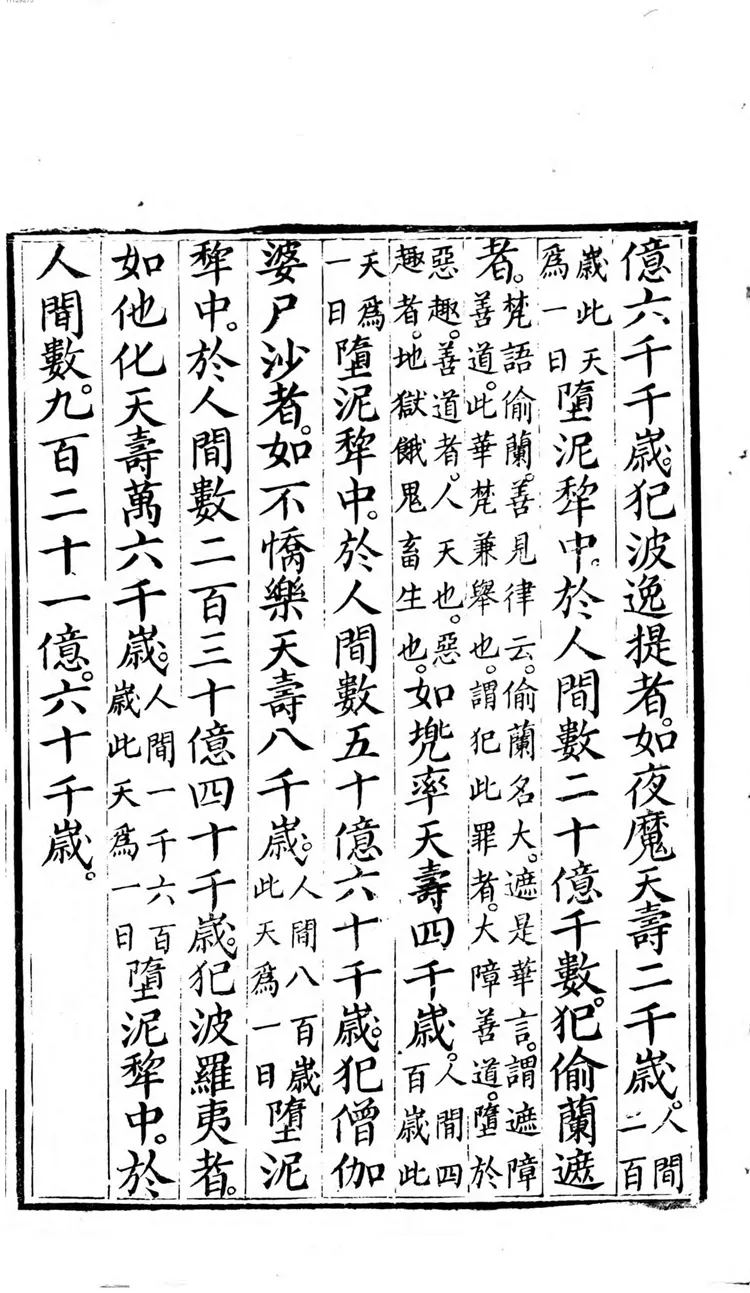 億六千千歲。犯波逸提者。如夜魔天壽二千歲。人間二百
歲此天爲一日墮泥犂中。於人間數二十億千數。犯偷蘭遮
者。梵語偷蘭。善見律云。偷蘭名大。遮是華言。謂遮障善道。此華梵兼舉也。謂犯此罪者。大障善道。墮於
惡趣。善道者。人天也。惡趣者。地獄餓鬼畜生也。如兜率天壽四千歲。人間四百歲此
天爲一日墮泥犂中。於人間數五十億六十千歲。犯僧伽
婆尸沙者。如不憍樂天壽八千歲。人間八百歲此天爲一日墮泥
犂中。於人間數二百三十億四十千歲。犯波羅夷者。
如他化天壽萬六千歲。人間一千六百歲此天爲一日墮泥犂中。於
人間數。九百二十一億。六十千歲。